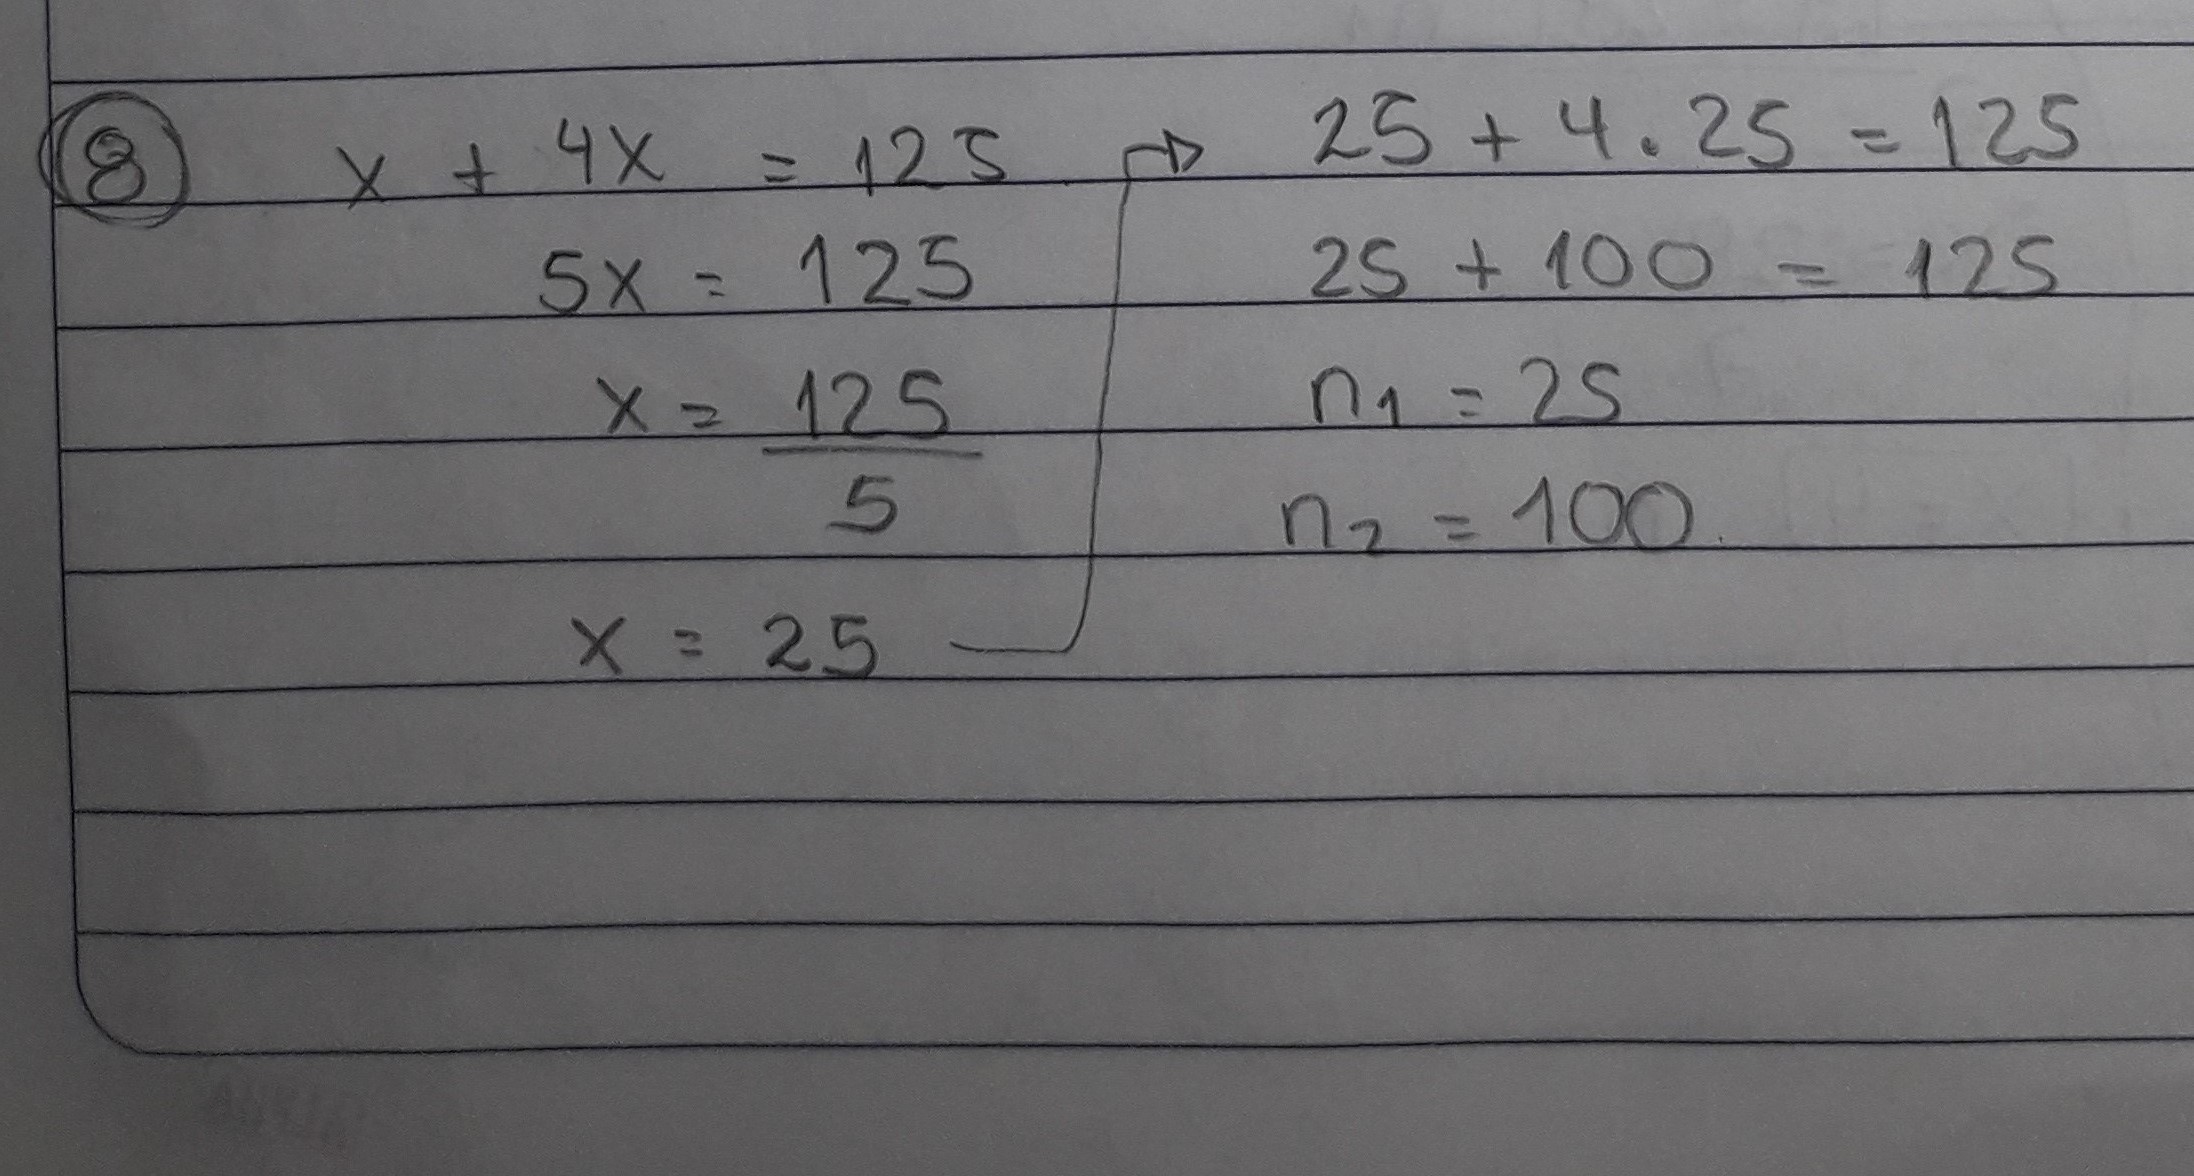 8 x + 4x = 125
5x = 125
x = 125
5
x = 25
→ 25 + 4 . 25 = 125
25 + 100 = 125
n1 = 25
n2 = 100